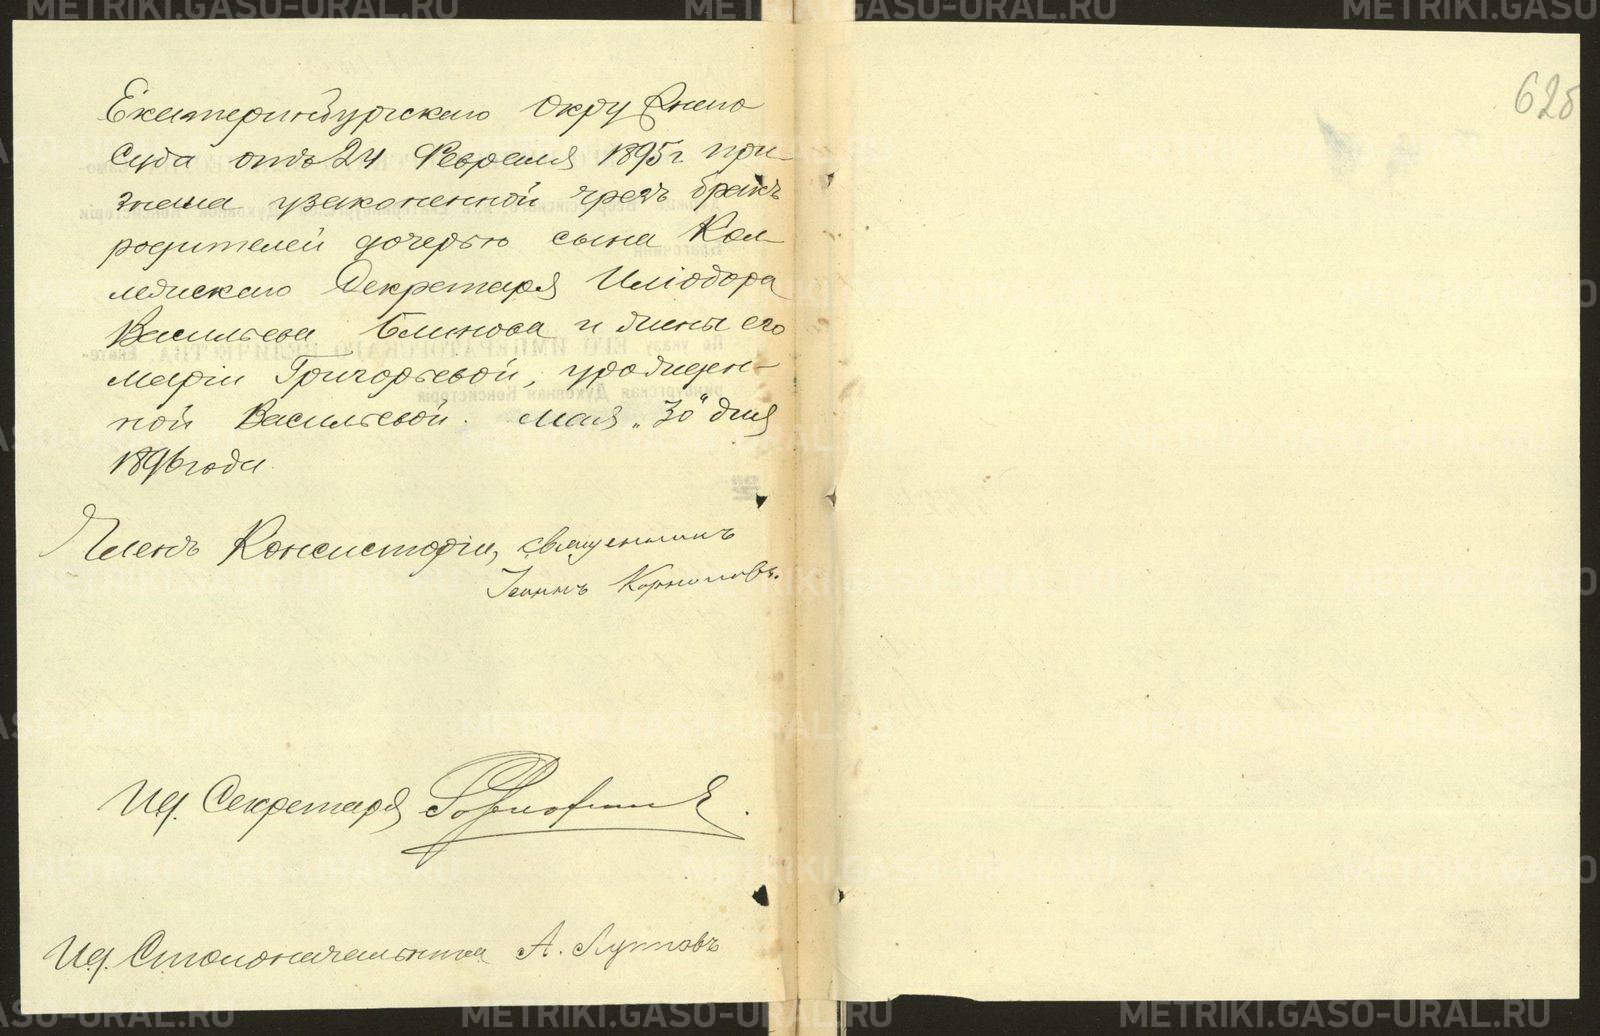 628
Екатеринбургскаго Окружнаго
Суда отъ 24 Февраля 1895 г при-
знана узаконенной чрезъ бракъ
родителей дочерью сына Кол-
лежскаго Секретаря Иліодора
Васильева Блинова и жены его
Маріи Григорьевой, урожден-
ной Васильевой. Мая „30" дня
1896 года
Членъ Консисторіи, священникъ
Іоаннъ Корниловъ.
Ид. Секретаря
Ид. Столоначальника А.
METRIKI.GASO-URAL.RU